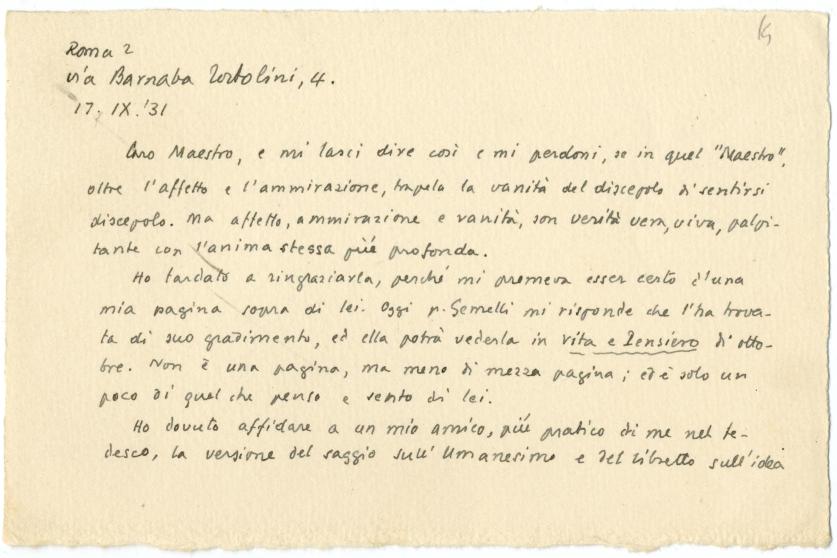 Roma 2
via Barnaba Tortolini, 4.
17. IX. '31
Caro Maestro, e mi lasci dire così e mi perdoni, se in quel "Maestro",
oltre l'affetto e l'ammirazione, trapela la vanità del discepolo di sentirsi
discepolo. Ma affetto, ammirazione e vanità, son verità vera, viva, palpi-
tante con l'anima stessa più profonda.
Ho tardato a ringraziarla, perché mi premeva esser certo d'una
mia pagina sopra di lei. Oggi p. Gemelli mi risponde che l'ha trova-
ta di suo gradimento, ed ella potrà vederla in Vita e Pensiero di otto-
bre. Non è una pagina, ma meno di mezza pagina; ed è solo un
poco di quel che penso e sento di lei.
Ho dovuto affidare a un mio amico, più pratico di me nel te-
desco, la versione del saggio sull'Umanesimo e del libretto sull'idea